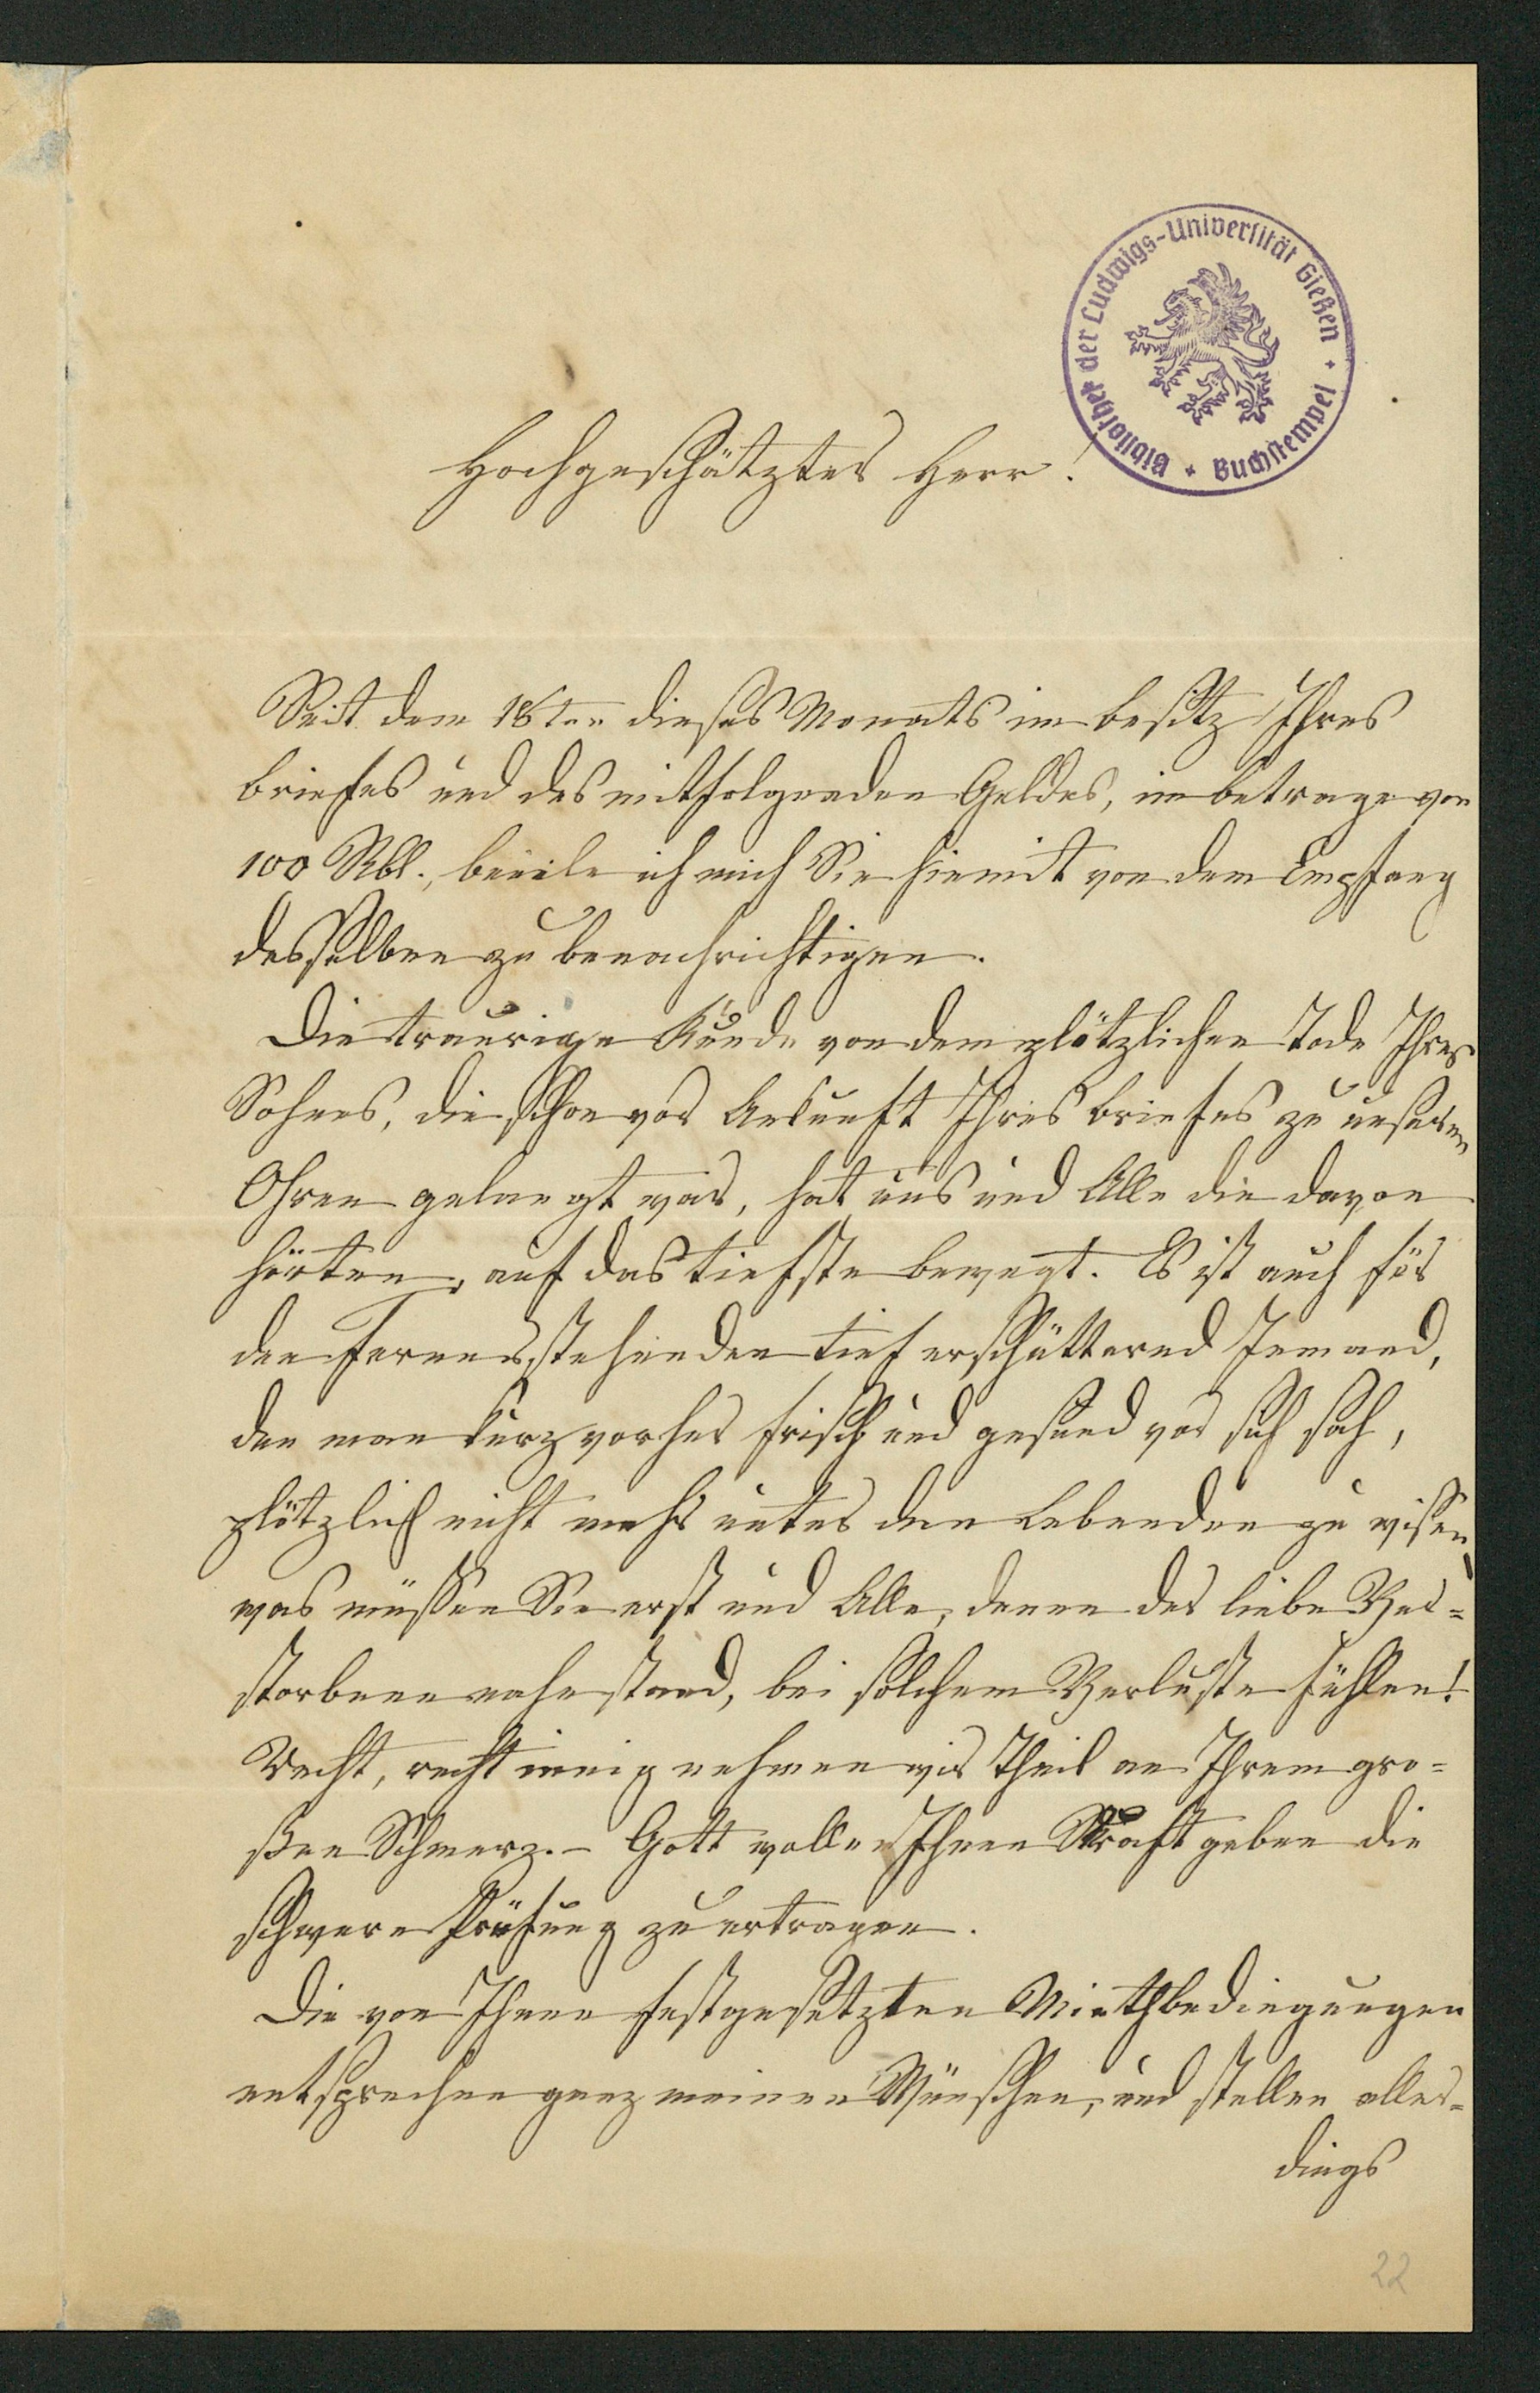 Bibliothek der Ludwigs-Universität Gießen + Buchstempel +
Hochgeschätzter Herr!
Seit dem 18ten dieses Monats im Besitz Ihres
Briefes und des mitfolgenden Geldes, im Betrage von
100 Rbl., beeile ich mich Sie hiemit von dem Empfang
desselben zu benachrichtigen.
Die traurige Kunde von dem plötzlichen Tode Ihres
Sohnes, die schon vor Ankunft Ihres Briefes zu unseren
Ohren gelangt war, hat uns und Alle die davon
hörten, auf das tiefste bewegt. Es ist auch für
den Fernerstehenden tief erschütternd Jemand,
den man kurz vorher frisch und gesund vor sich sah,
plötzlich nicht mehr unter den Lebenden zu wissen,
was müssen Sie erst und Alle, denen der liebe Ver=
storbene nahe stand, bei solchem Verluste fühlen!
Recht, recht innig nehmen wir Theil an Ihrem gro=
ßen Schmerz. – Gott wolle Ihnen Kraft geben die
schwere Prüfung zu ertragen.
Die von Ihnen festgesetzten Miethbedingungen
entsprechen ganz meinen Wünschen, und stellen aller=
dings
22